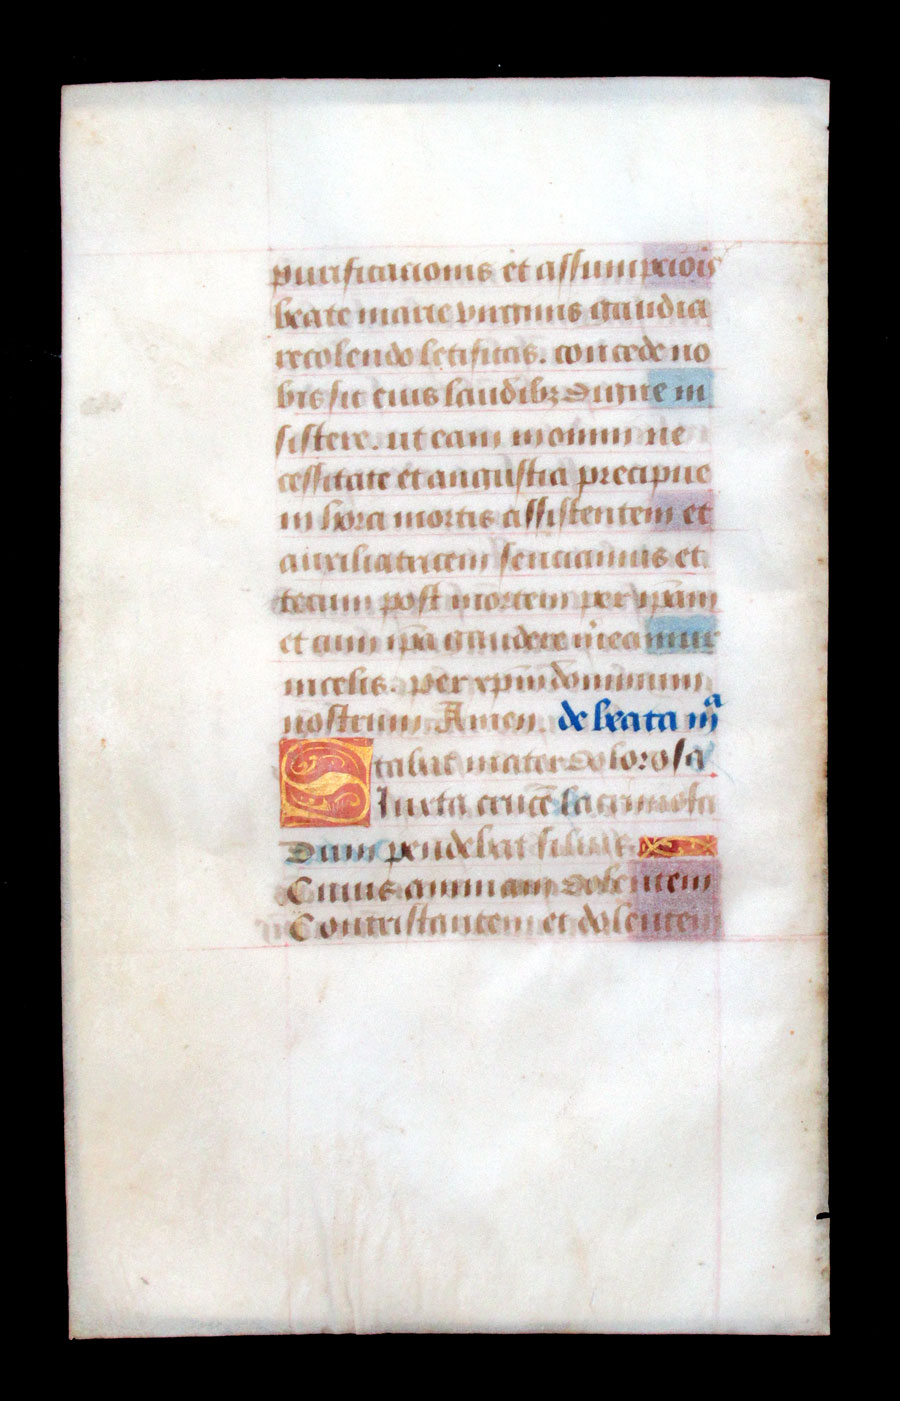 purificacionis et assumpcionis
beate marie virginis gaudia
recolendo letificas. concede no
bis sic eius laudibꝫ digne in
sistere. ut eam in omni ne
cessitate et angustia precipue
in hora mortis assistentem et
auxiliatricem senciamus et
tecum post mortem per ip̄am
et cum ip̄a gaudere mereamur
in celis. per xp̄m dominum
nostrum. Amen. de beata mᵃ
Stabat mater dolorosa
Iuxta crucē lacrimosa
Dum pendebat filius.
Cuius animam dolentem
Contristantem et dolentem